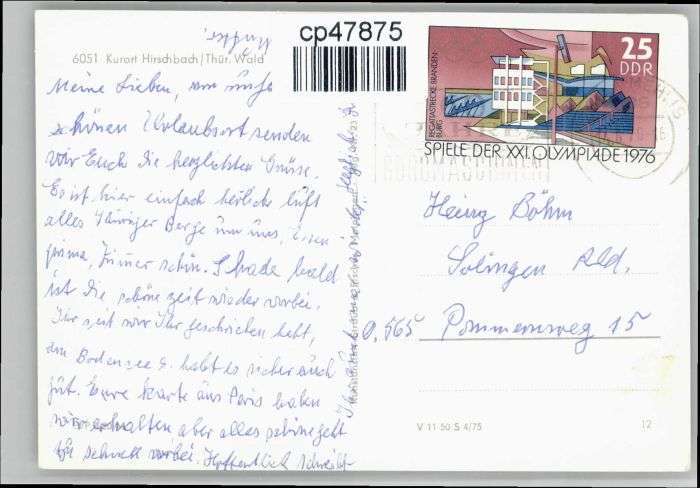 cp47875
6051 Kurort Hirschbach/Thür. Wald
25
DDR
REGATTASTRECKE BRANDEN-
BURG
SPIELE DER XXI. OLYMPIADE 1976
Meine Lieben, vom
schönen Urlaubsort senden
wir Euch die herzlichsten Grüsse.
Es ist hier einfach herliche luft
alles Thüringer Berge um uns, Essen
prima, Zimmer schön. Schade bald
ist die schöne Zeit wieder vorbei.
Ihr seit wie Ihr geschrieben habt,
am Bodensee u. habt es sicher auch
gut. Eure Karte aus Paris haben
wir erhalten aber alles schöne geht
schnell vorbei. Hoffentlich schreibt
Heinz Böhm
Solingen Rld.
Pommernweg 15
V 11 50 S 4/75
12